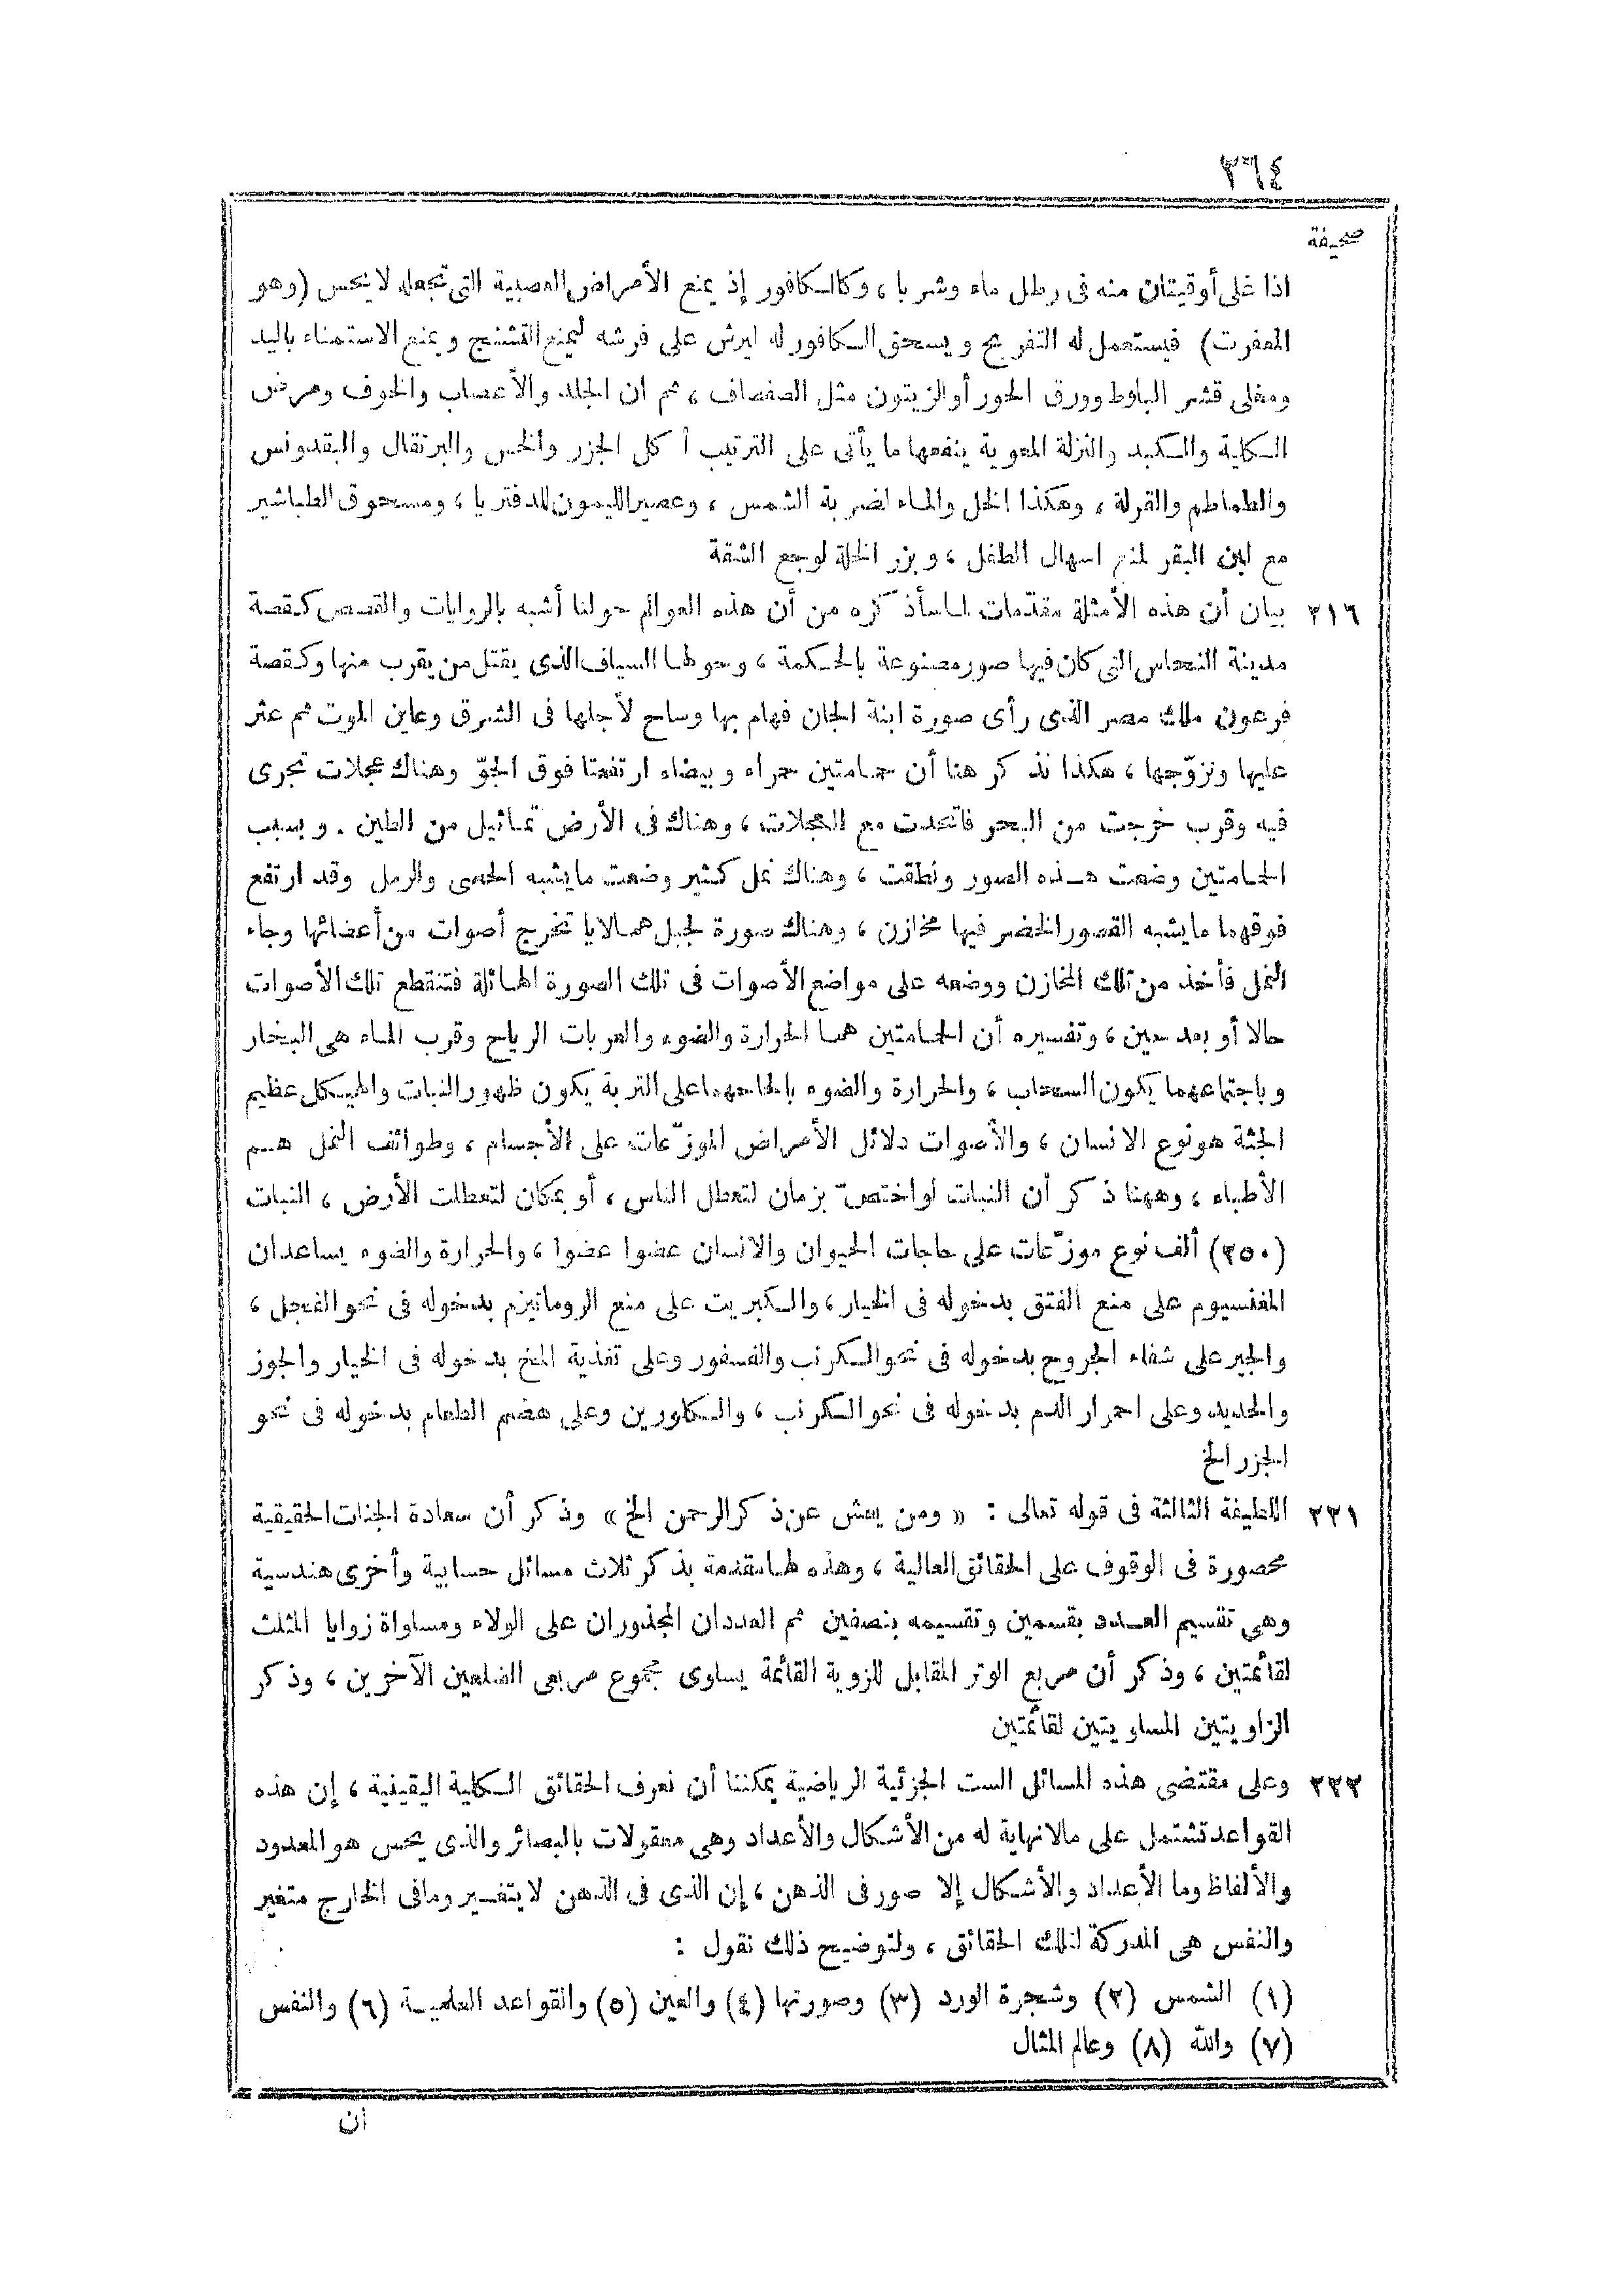 ٣٦٤
صحيفة
اذا غلى أوقيتان منه فى رطل ماء وشربا ، وكالكافور إذ يمنع الأمراض العصبية التى تجعله لا يحس (وهو
المعفرت) فيستعمل له التفريح ويسحق الكافور له ليرش على فرشه ليمنع التشنج ويمنع الاستمناء باليد
ومغلى قشر البلوط وورق الحور أو الزيتون مثل الصفصاف ، ثم ان الجلد والأعصاب والخوف ومرض
الكلية والكبد والنزلة المعوية ينفعها ما يأتى على الترتيب أكل الجزر والخس والبرتقال والبقدونس
والطماطم والقرلة ، وهكذا الخل والماء لضربة الشمس ، وعصير الليمون للدفتريا ، ومسحوق الطباشير
مع لبن البقر لمنع اسهال الطفل ، وبزر الخلة لوجع الشقة
٢١٦ بيان أن هذه الأمثلة مقدّمات لما سأذكره من أن هذه العوالم حولنا أشبه بالروايات والقصص كقصة
مدينة النحاس التى كان فيها صور مصنوعة بالحكمة ، وحولها السياف الذى يقتل من يقرب منها وكقصة
فرعون ملك مصر الذى رأى صورة ابنة الجان فهام بها وساح لأجلها فى الشرق وعاين الموت ثم عثر
عليها وتزوّجها ، هكذا نذكر هنا أن حمامتين حمراء وبيضاء ارتفعتا فوق الجوّ وهناك عجلات تجرى
فيه وقرب خرجت من البحر فاتحدت مع العجلات ، وهناك فى الأرض تماثيل من الطين . وبسبب
الحمامتين وضعت هذه الصور ونطقت ، وهناك نمل كثير وضعت ما يشبه الحصى والرمل وقد ارتفع
فوقهما ما يشبه القصور الخضر فيها مخازن ، وهناك صورة لجبل همالايا تخرج أصوات من أعضائها وجاء
النمل فأخذ من تلك المخازن ووضعه على مواضع الأصوات فى تلك الصورة الهائلة فتنقطع تلك الأصوات
حالا أو بعد حين ، وتفسيره أن الحمامتين هما الحرارة والضوء والعربات الرياح وقرب الماء هى البخار
وباجتماعهما يكون السحاب ، والحرارة والضوء بالحاحهما على التربة يكون ظهور النبات والهيكل عظيم
الجثة هو نوع الانسان ، والأصوات دلائل الأمراض الموزّعات على الأجسام ، وطوائف النمل هم
الأطباء ، وههنا ذكر أن النبات لو اختصّ بزمان لتعطل الناس ، أو بمكان لتعطلت الأرض ، النبات
(٢٥٠) ألف نوع موزّعات على حاجات الحيوان والانسان عضوا عضوا ، والحرارة والضوء يساعدان
المغنسيوم على منع الفتق بدخوله فى الخيار ، والكبريت على منع الروماتيزم بدخوله فى نحو الفجل ،
والجير على شفاء الجروح بدخوله فى نحو الكرنب والفسفور وعلى تغذية المخ بدخوله فى الخيار والجوز
والحديد وعلى احمرار الدم بدخوله فى نحو الكرنب ، والكلورين وعلى هضم الطعام بدخوله فى نحو
الجزر الخ
٢٢١ اللطيفة الثالثة فى قوله تعالى : « ومن يعش عن ذكر الرحمن الخ » وذكر أن سعادة الجنات الحقيقية
محصورة فى الوقوف على الحقائق العالية ، وهذه لها مقدمة بذكر ثلاث مسائل حسابية وأخرى هندسية
وهى تقسيم العدد بقسمين وتقسيمه بنصفين ثم العددان المجذوران على الولاء ومساواة زوايا المثلث
لقائمتين ، وذكر أن مربع الوتر المقابل للزوية القائمة يساوى مجموع مربعى الضلعين الآخرين ، وذكر
الزاويتين المساويتين لقائمتين
٢٢٢ وعلى مقتضى هذه المسائل الست الجزئية الرياضية يمكننا أن نعرف الحقائق الكلية اليقينية ، إن هذه
القواعد تشتمل على مالا نهاية له من الأشكال والأعداد وهى معقولات بالبصائر والذى يحس هو المعدود
والألفاظ وما الأعداد والأشكال إلا صور فى الذهن ، إن الذى فى الذهن لا يتغير وما فى الخارج متغير
والنفس هى المدركة لتلك الحقائق ، ولتوضيح ذلك نقول :
(١) الشمس (٢) وشجرة الورد (٣) وصورتها (٤) والعين (٥) والقواعد العلمية (٦) والنفس
(٧) والله (٨) وعالم المثال
أن